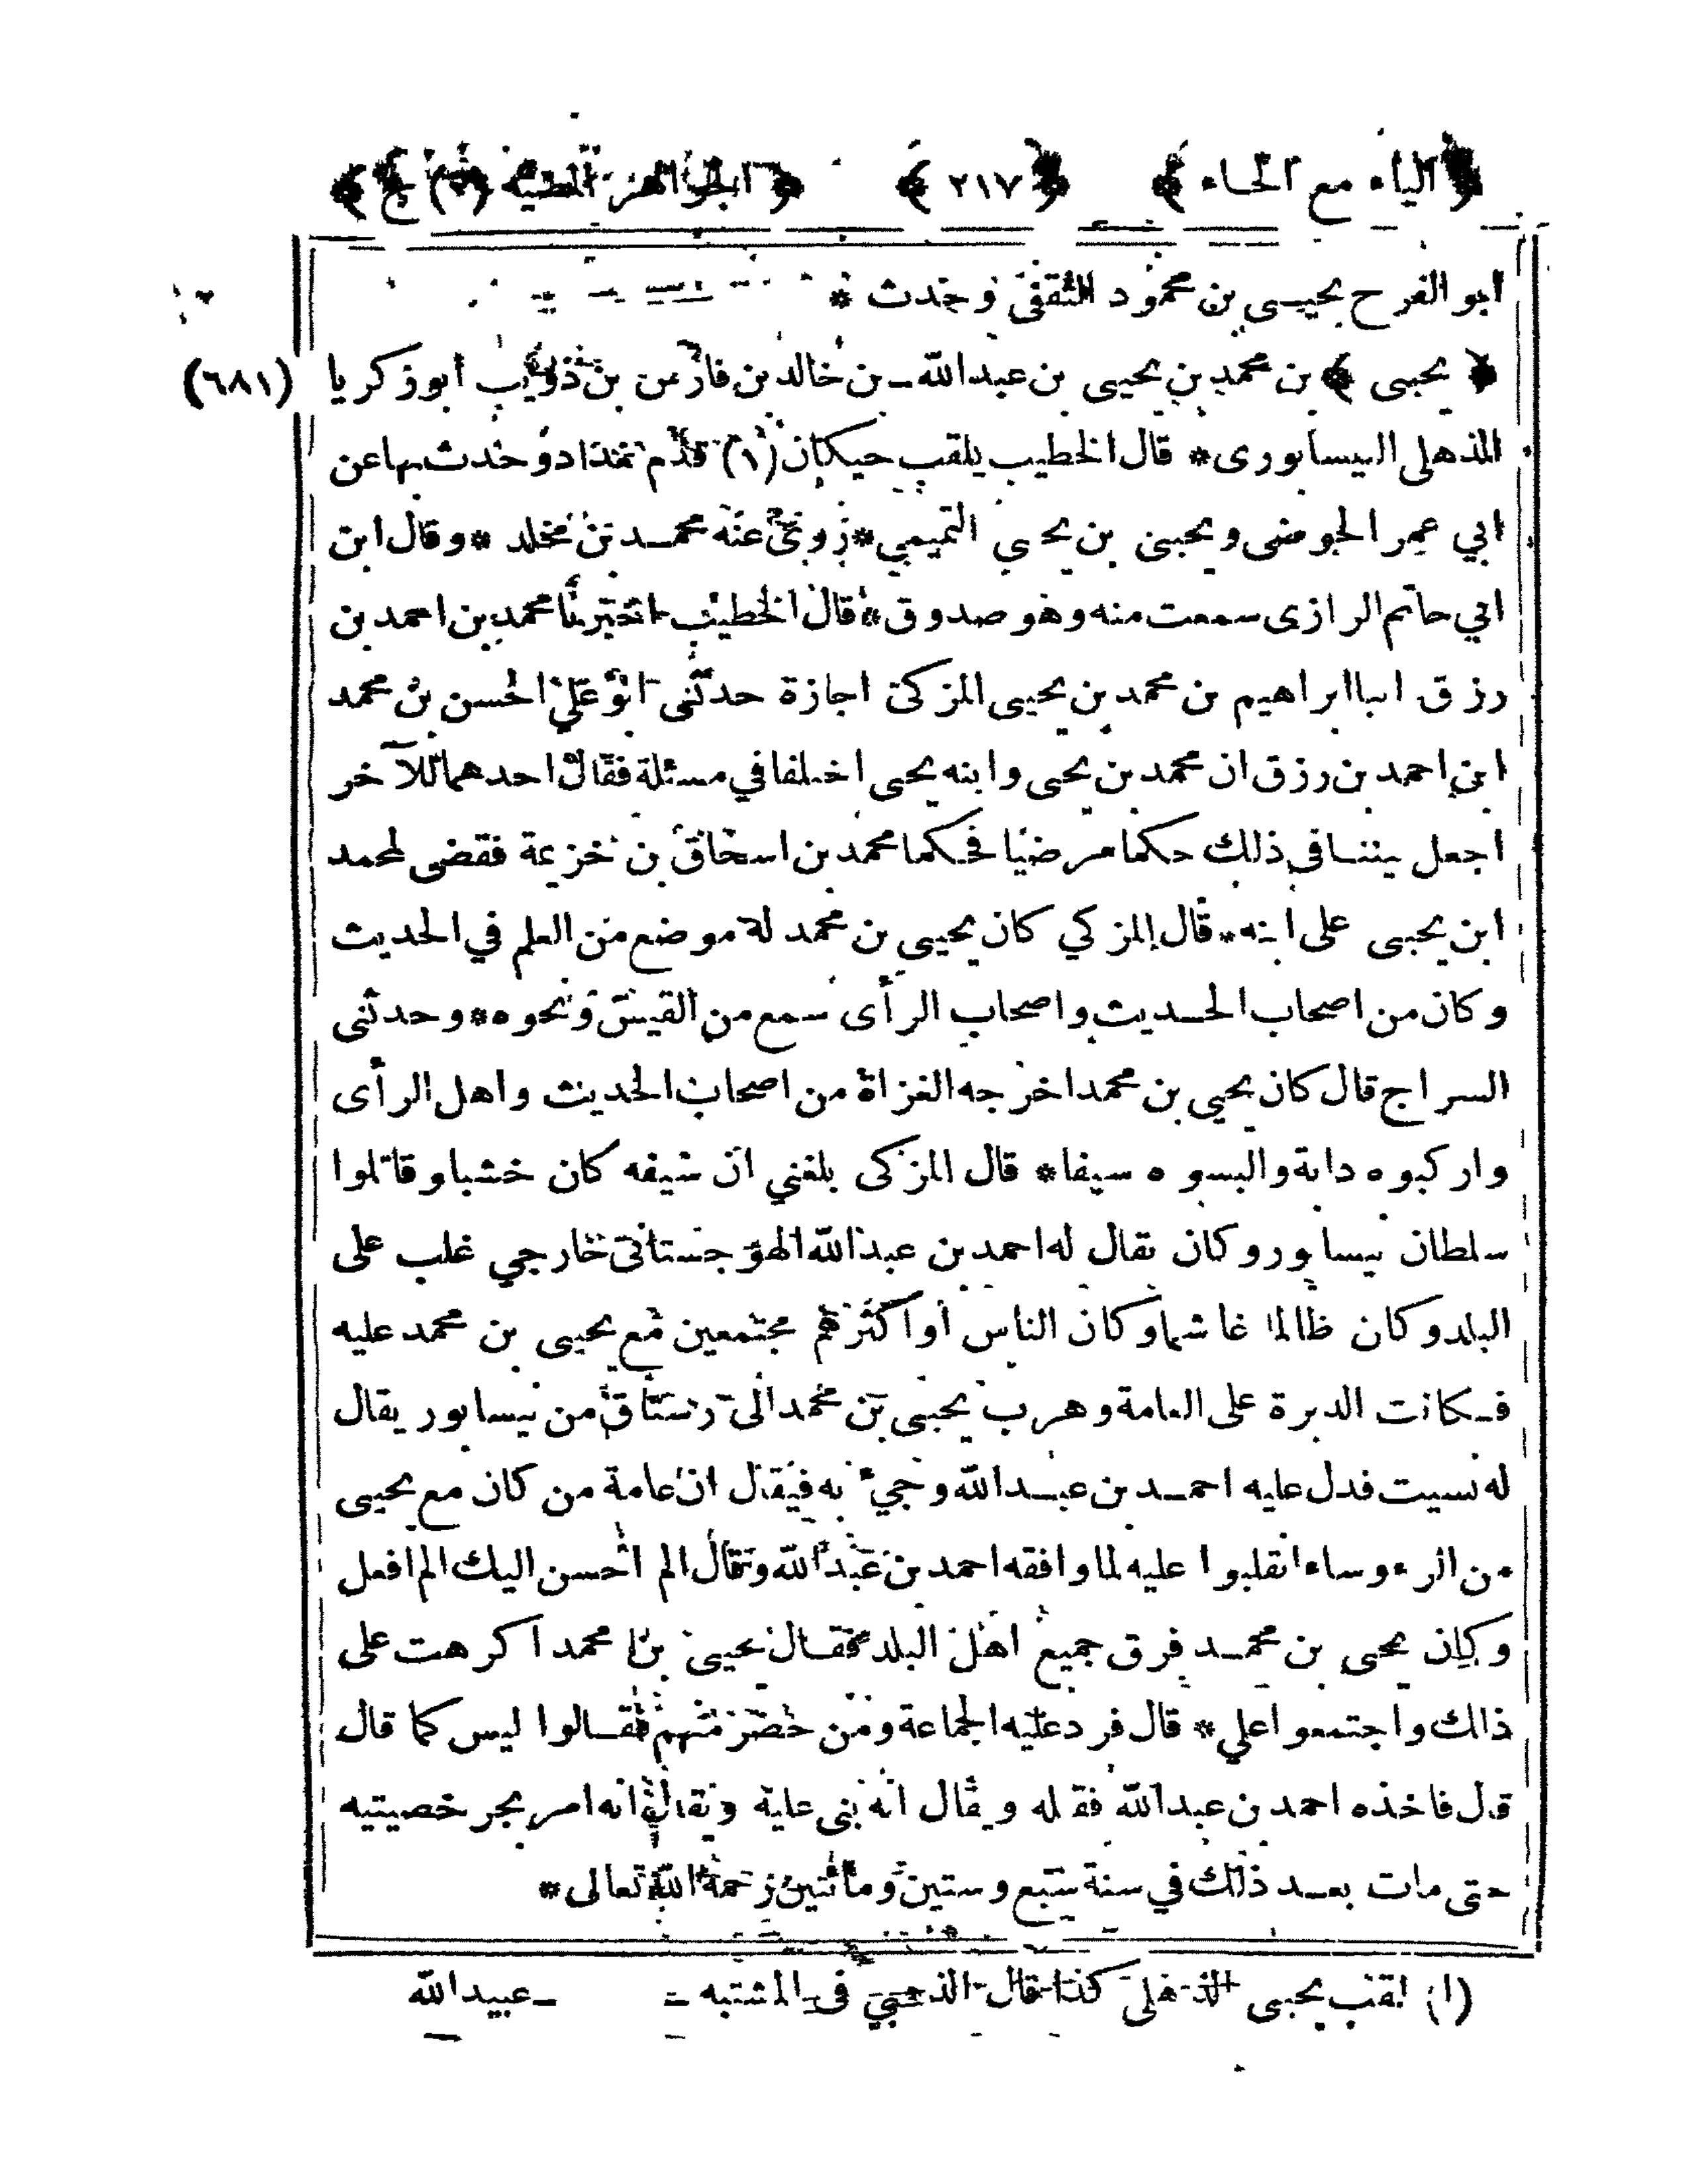 ﴿ الياء مع الحاء ﴾ ﴿ ٢١٧ ﴾ ﴿ الجواهر المضية (٢) ج ﴾
ابو الفرح يحيى بن محمود الثقفى وحدث *
﴿ يحيى ﴾ بن محمد بن يحيى بن عبدالله بن خالد بن فارس بن ذويب أبو زكريا (٦٨١)
الذهلى النيسابورى * قال الخطيب يلقب حيكان (١) قدم بغداد وحدث بها عن
ابي عمر الحوضى ويحيى بن يحيى التميمي * روى عنه محمد بن مخلد * وقال ابن
ابي حاتم الرازى سمعت منه وهو صدوق * قال الخطيب اخبرنا محمد بن احمد بن
رزق انبا ابراهيم بن محمد بن يحيى المزكى اجازة حدثنى ابو علي الحسن بن محمد
ابن احمد بن رزق ان محمد بن يحيى وابنه يحيى اختلفا في مسئلة فقال احدهما للآخر
اجعل بيننا فى ذلك حكما مرضيا فحكما محمد بن اسحاق بن خزيمة فقضى لمحمد
ابن يحيى على ابنه * قال المزكي كان يحيى بن محمد له موضع من العلم في الحديث
وكان من اصحاب الحديث واصحاب الرأى سمع من القيسى ونحوه * وحدثنى
السراج قال كان يحيى بن محمد اخرجه الغزاة من اصحاب الحديث واهل الرأى
واركبوه دابة والبسوه سيفا * قال المزكى بلغني ان سيفه كان خشبا وقاتلوا
سلطان نيسابور وكان يقال له احمد بن عبدالله الهوجستانى خارجي غلب على
البلد وكان ظالما غاشما وكان الناس أو اكثرهم مجتمعين مع يحيى بن محمد عليه
فكانت الدبرة على العامة وهرب يحيى بن محمد الى رستاق من نيسابور يقال
له نسيت فدل عليه احمد بن عبدالله وجيء به فيقال ان عامة من كان مع يحيى
من الرءوساء انقلبوا عليه لما وافقه احمد بن عبدالله وقال الم احسن اليك الم افعل
وكان يحيى بن محمد فرق جميع اهل البلد فقال يحيى بن محمد اكرهت على
ذالك واجتمعوا علي * قال فرد عليه الجماعة ومن حضر منهم فقالوا ليس كما قال
قال فاخذه احمد بن عبدالله فقتله ويقال انه بنى عليه ويقال انه امر بجر خصيتيه
حتى مات بعد ذلك في سنة سبع وستين ومائتين رحمة الله تعالى *
(١) لقب يحيى الذهلى كذا قال الذهبي فى المشتبه عبيدالله